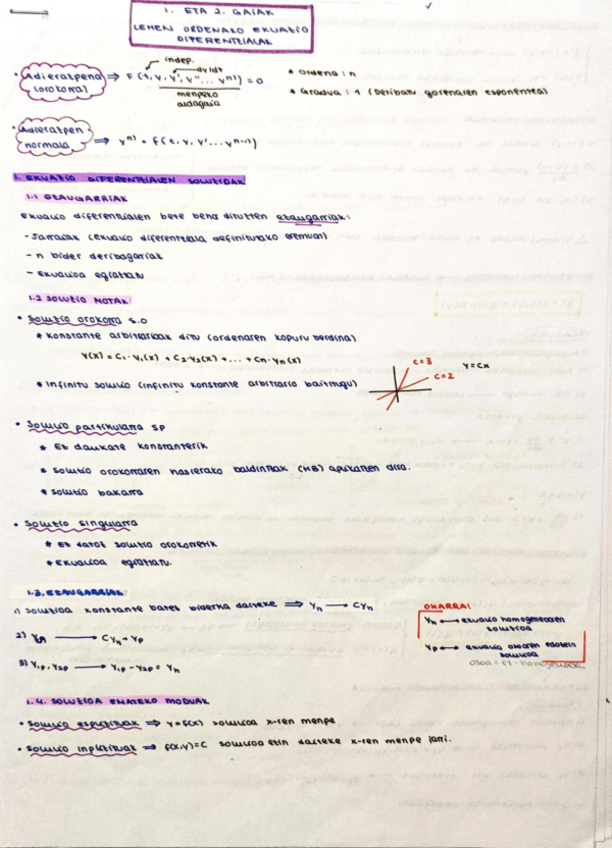 1. ETA 2. GAIAK
LEHEN ORDENAKO EKUAZIO
DIFERENTZIALAK
indep.
dy/dt
• Adierazpena (orokorra) ⇒ F (t, y, y', y'' ... yⁿ⁾) = 0
menpeko aldagaia
* Ordena: n
* Gradua: 1 (Deribatu gorenaren exponentea)
• Adierazpen normala ⇒ yⁿ⁾ = f(t, y, y' ... yⁿ⁻¹⁾)
1. EKUAZIO DIFERENTZIALEN SOLUZIOAK
1.1 EZAUGARRIAK
Ekuazio diferentzialen bete behar dituzten ezaugarriak:
- Jarraiak (ekuazio diferentziala definituriko eremuan)
- n bider deribagarriak
- Ekuazioa egiaztatu
1.2 SOLUZIO MOTAK
• Soluzio orokorra S.O
* Konstante arbitrarioak ditu (ordenaren kopuru berdina)
y(x) = C₁·y₁(x) + C₂·y₂(x) + ... + Cn·yn(x)
* Infinitu soluzio (infinitu konstante arbitrario baititugu)
C=3
C=2
y=Cx
• Soluzio partikularra SP
* Ez daukate konstanterik
* Soluzio orokorraren hasierako baldintzak (HB) aplikatzen dira.
* Soluzio bakarra
• Soluzio singularra
* Ez dator soluzio orokorretik
* Ekuazioa egiaztatu.
1.3. EZAUGARRIAK
1) Soluzioa konstante batez biderka daiteke ⇒ Yn → CYn
2) Yn → CYn + Yp
3) Y1p, Y2p → Y1p - Y2p = Yn
OHARRA!
Yn ↔ ekuazio homogenearen soluzioa
Yp ↔ ekuazio osoaren edozein soluzioa
osoa = ez-homogeneoa
1.4. SOLUZIOA EMATEKO MODUAK
• Soluzio esplizituak ⇒ y=f(x) soluzioa x-ren menpe
• Soluzio inplizituak ⇒ f(x,y)=C soluzioa ezin daiteke x-ren menpe jarri.